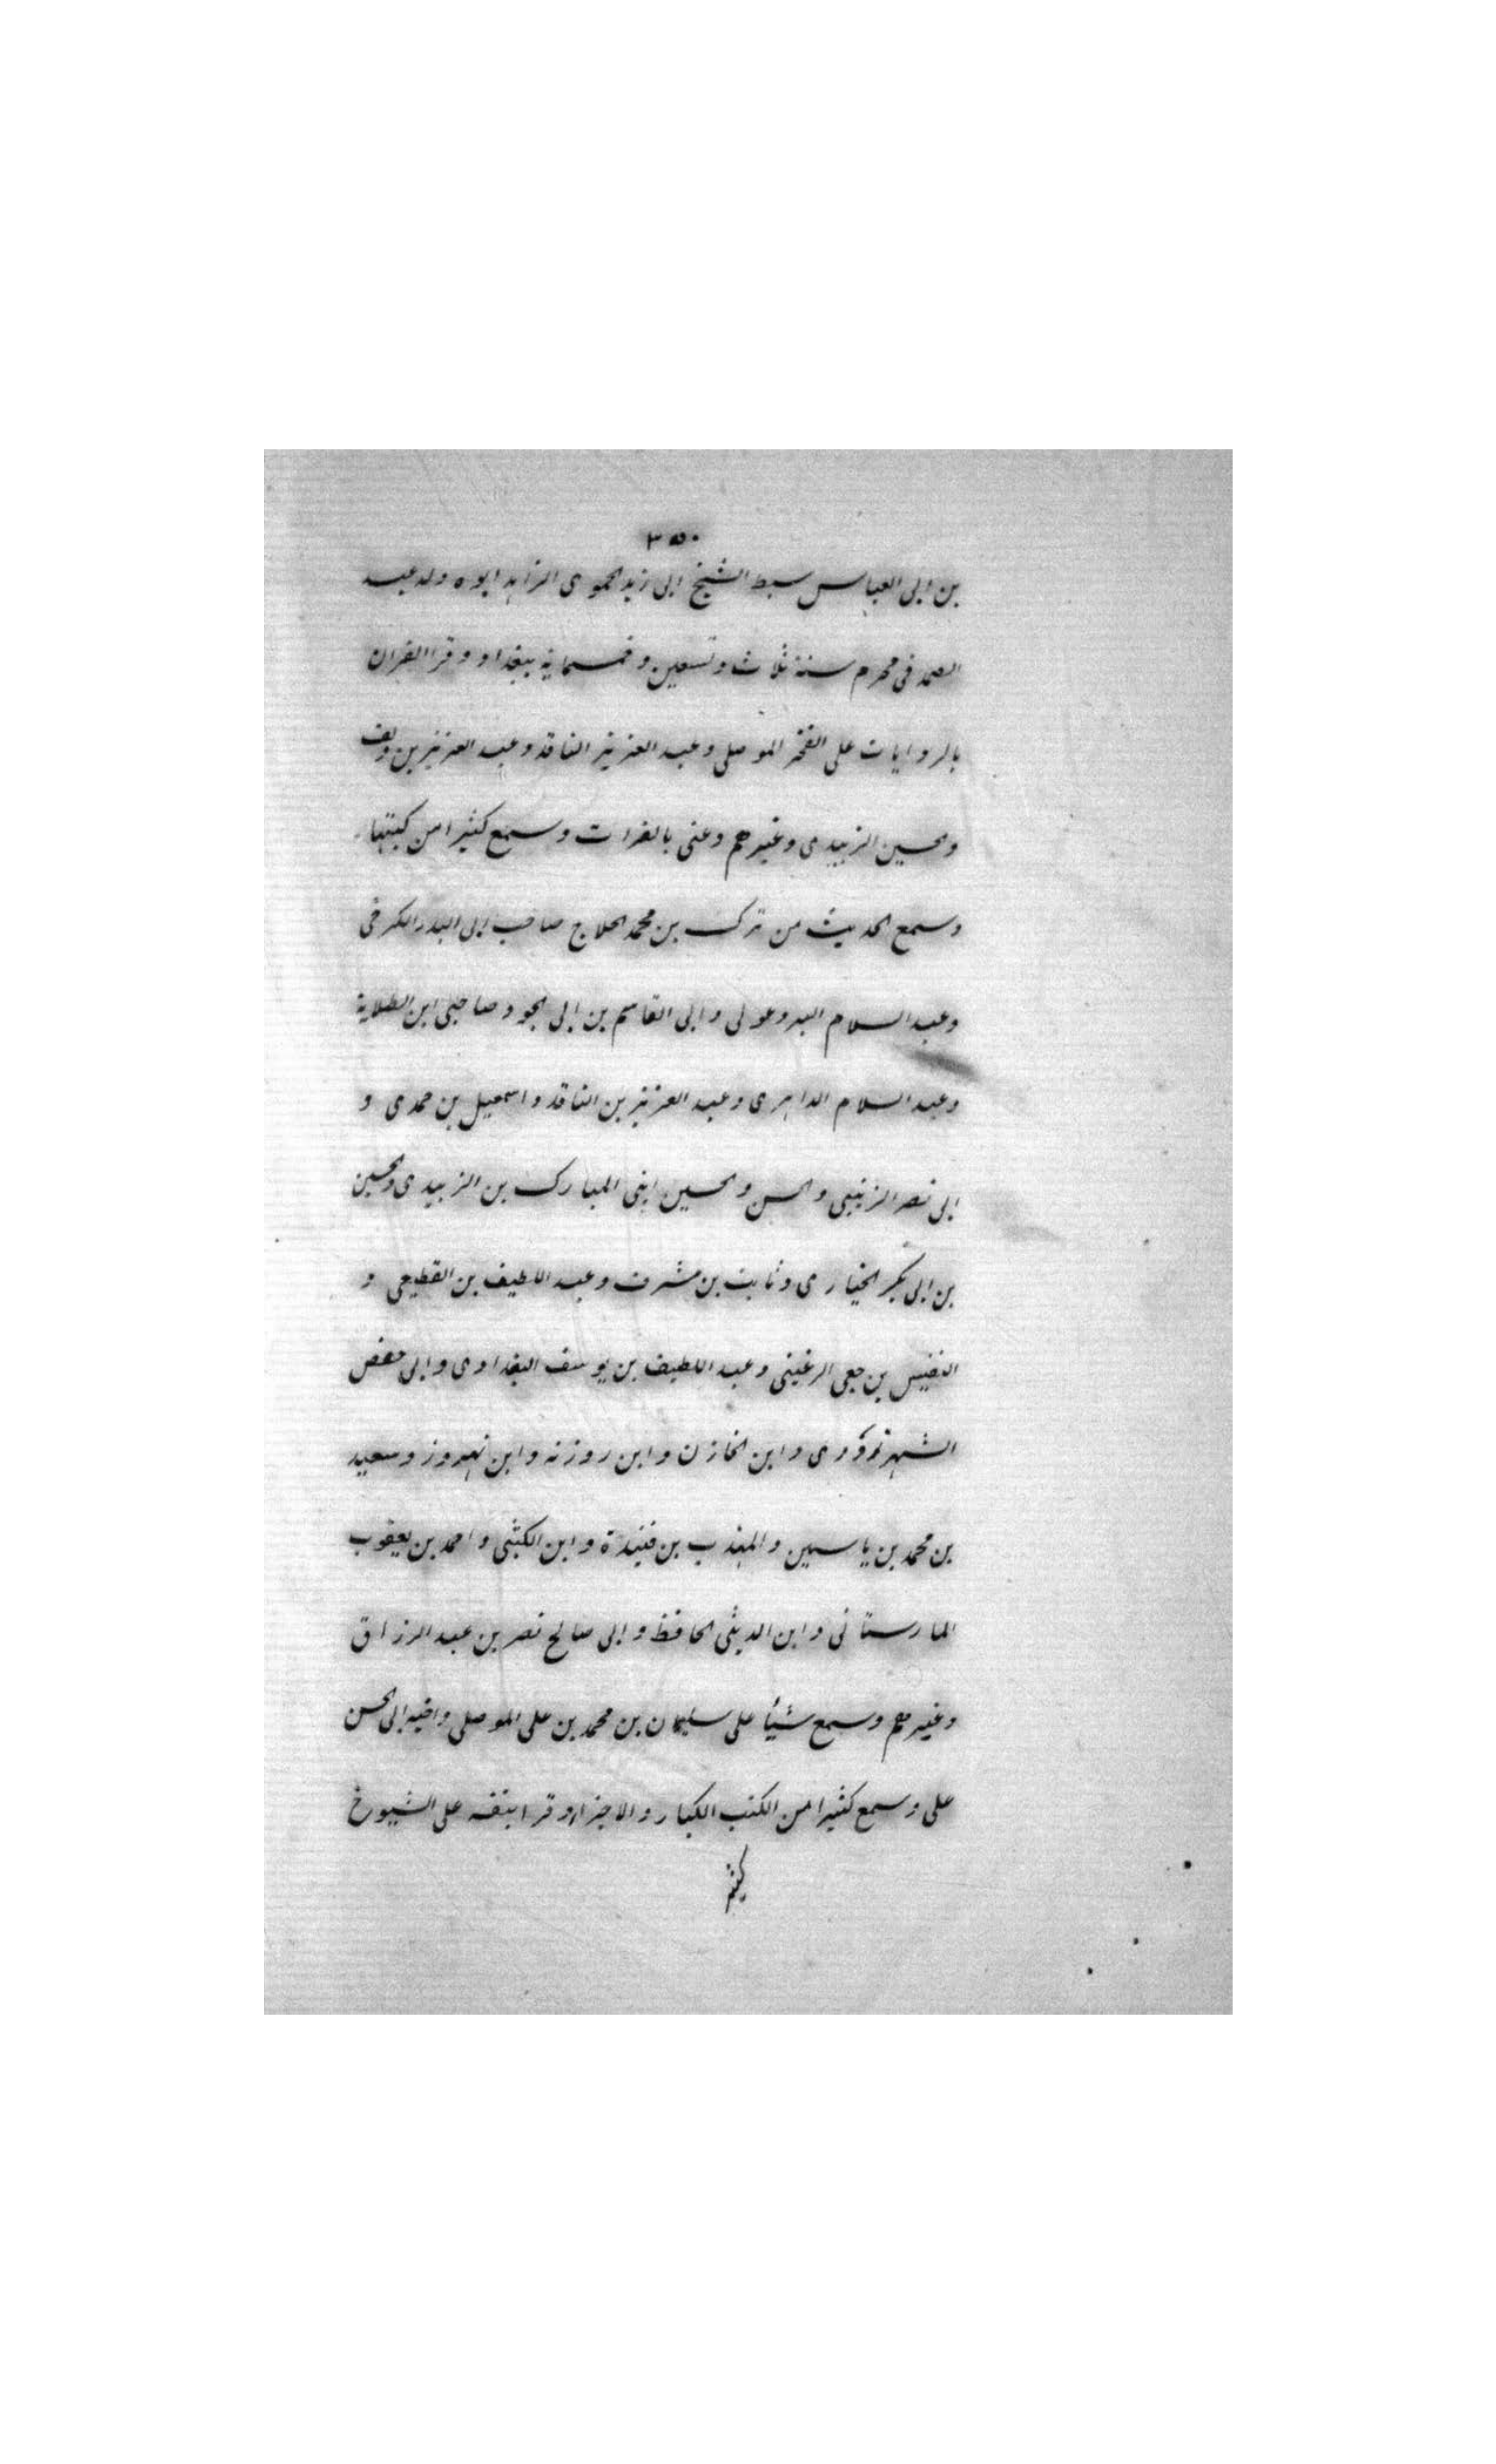 ٣٥٠
بن ابى العباس سبط الشيخ ابى زيد الحموى الزاهد ابوه ولد عبد
الصمد فى محرم سنة ثلاث وتسعين وخمسماية ببغداد وقرا القران
بالروايات على الفخر الموصلى وعبد العزيز الناقد وعبد العزيز بن دلف
والحسين الزبيدى وغيرهم وعنى بالقرات وسمع كثيرا من كتبها
وسمع الحديث من ترك بن محمد الحلاج صاحب ابى البدر الكرخى
وعبد السلام البردغولى وابى القاسم بن ابى الجود صاحبى ابن الطلاية
وعبد السلام الداهرى وعبد العزيز بن الناقد واسمعيل بن حمدى و
ابى نصر الزينبى والحسن والحسين ابنى المبارك بن الزبيدى والحسين
بن ابى بكر الخيارى وثابت بن مشرف وعبد اللطيف بن القطيعى و
النفيس بن جعى الرغينى وعبد اللطيف بن يوسف البغدادى وابى حفص
السهروردى وابن الخازن وابن روزنه وابن بهروز وسعيد
بن محمد بن ياسين والمهذب بن قنيدة وابن الكثبى واحمد بن يعقوب
المارستانى وابن الدبيثى الحافظ وابى صالح نصر بن عبد الرزاق
وغيرهم وسمع شيأ على سليمان بن محمد بن على الموصلى واخيه ابى الحسن
على وسمع كثيرا من الكتب الكبار والاجزاء وقرا بنفسه على الشيوخ